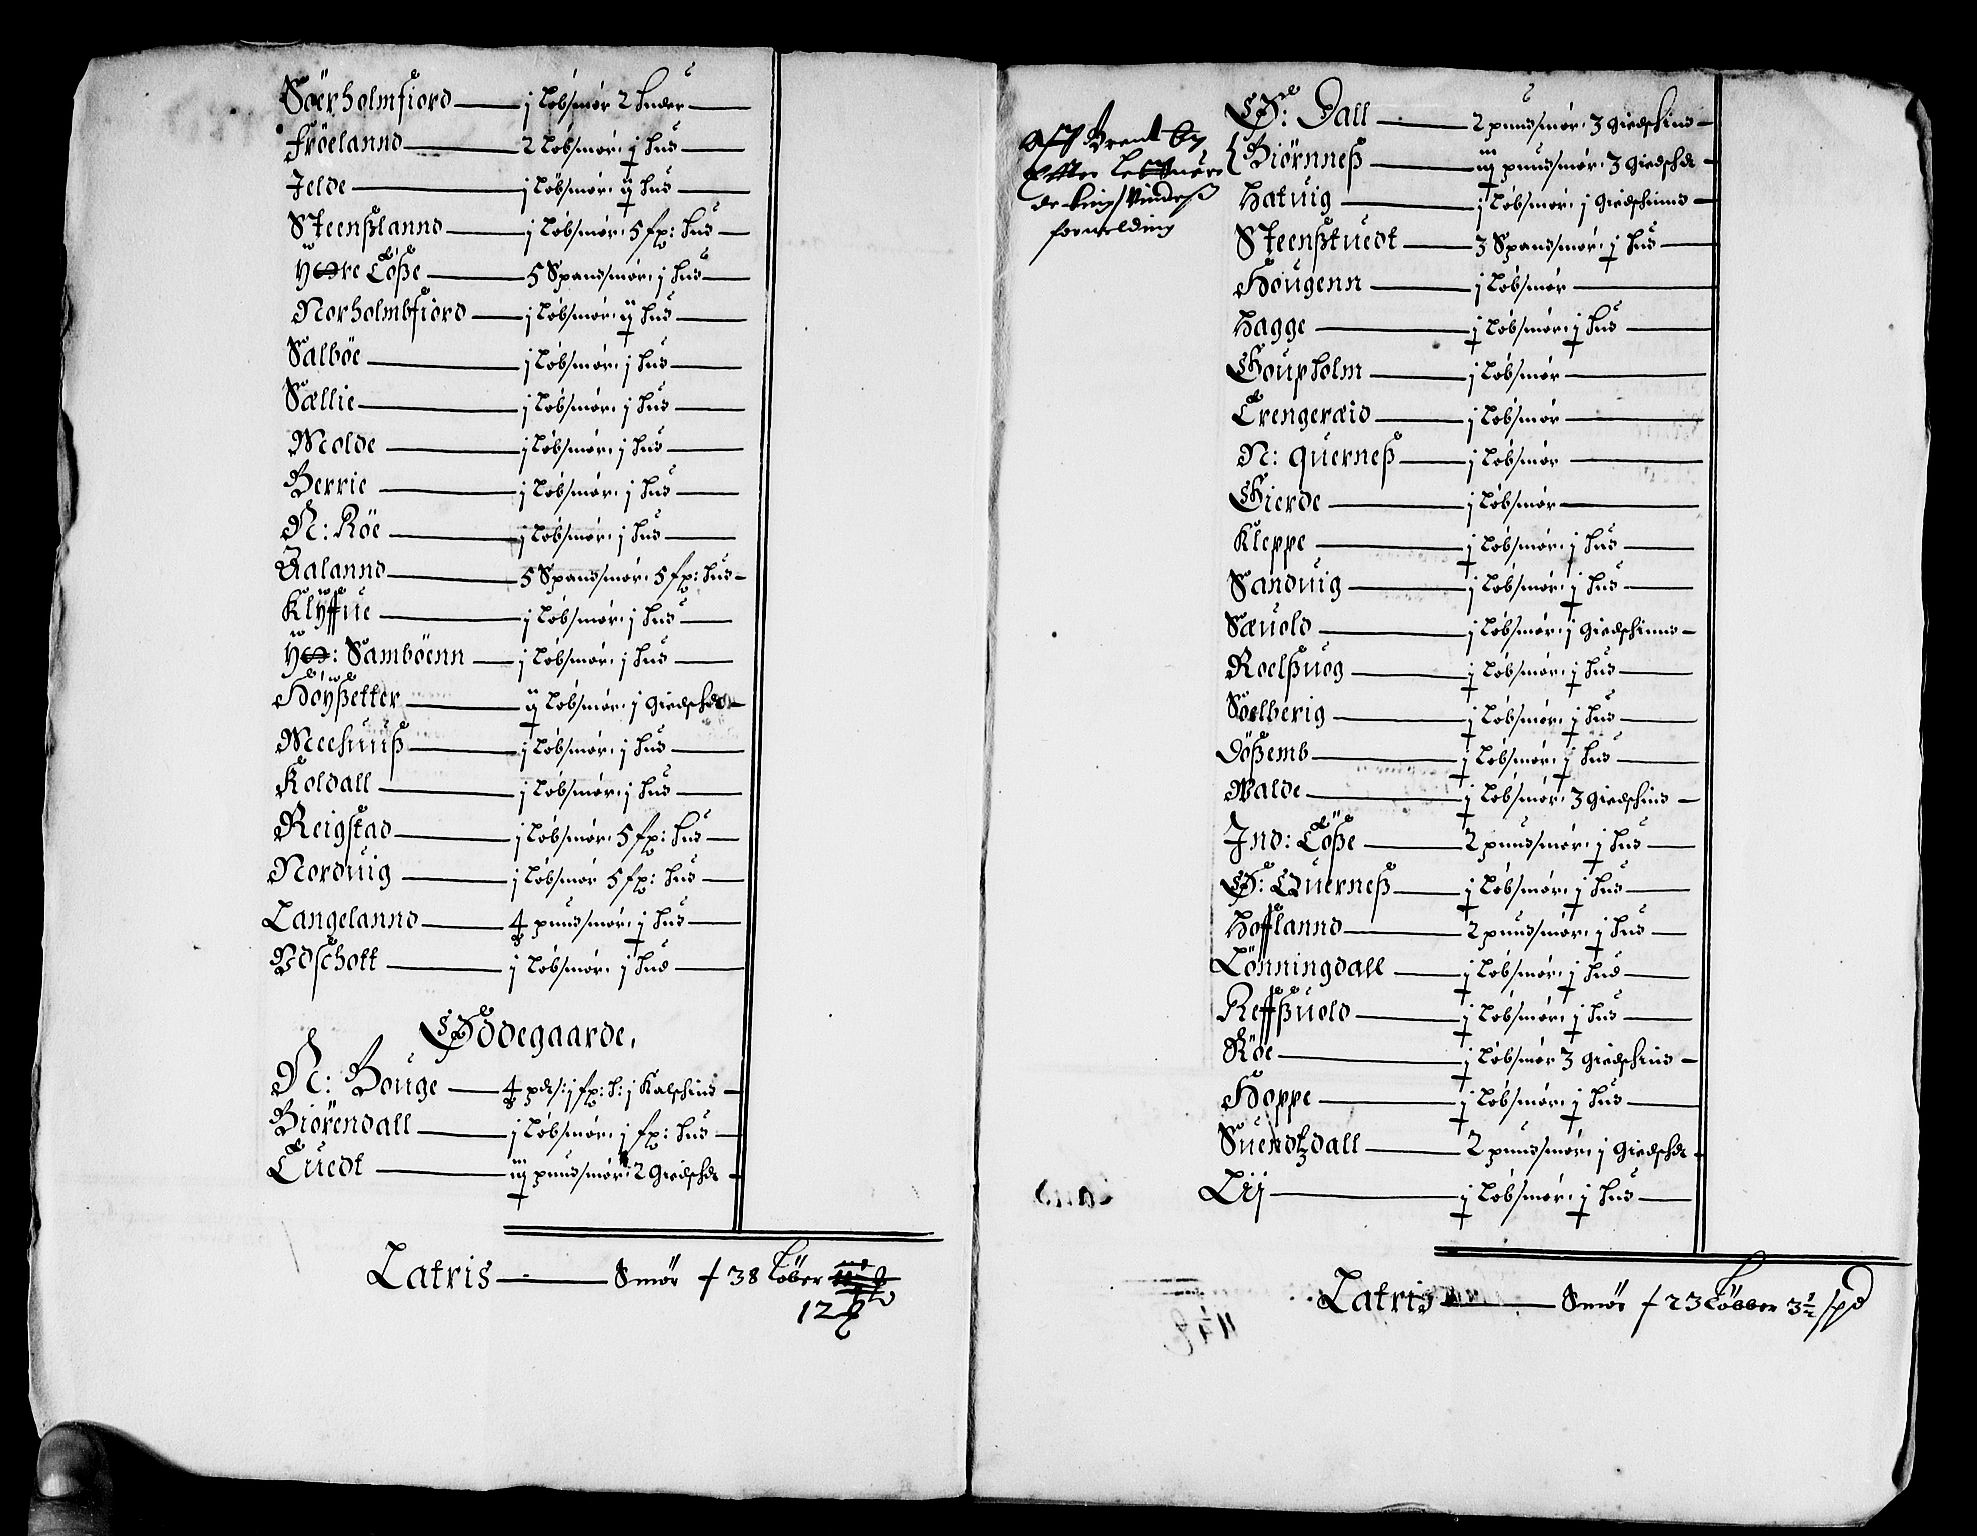 Söerholmfiord — j Löbsmör 2 huder
Fröelannd — 2 Löbsmör: j hud
Jelde — j Löbsmör: ij hud
Steenßlannd — j Löbsmör: 5 fp: hud
Löße — 5 Spandsmör: j hud
Norholmbfiord — j Löbsmör: ij hud
Salböe — j Löbsmör: j hud
Sællie — j Löbsmör: j hud
Molde — j Löbsmör: j hud
Berrie — j Löbsmör: j hud
N: Röe — j Löbsmör: j hud
Aalannd — 5 Spandsmör: 5 fp: hud
Klyffue — j Löbsmör: j hud
Samböenn — j Löbsmör: j hud
Höyßetter — ij Löbsmör: j giedschd
Meehuuß — j Löbsmör: j hud
Koldall — j Löbsmör: j hud
Reigstad — j Löbsmör: 5 fp: hud
Norduig — j Löbsmör 5 fp: hud
Langelannd — 4 pundsmör: j hud
Vdschott — j Löbsmör: j hud
Ödegaarde,
N: Bouge — 4 pds: j fp: h: j Kalschind
Biörendall — j Löbsmör: j fp: hud
Tuedt — iij pundsmör: 2 giedschd
Latris — Smör 38 Löber
12
aff Brent by
Effter
formelding
Ö: Dall — 2 pundsmör: 3 giedschind
Biörnneß — iij pundsmör: 3 giedschd
Hatuig — j Löbsmör: j giedschinnd
Steenßtuedt — 3 Spandsmör: j hud
Hougenn — j Löbsmör
Hagge — j Löbsmör: j hud
Goupholm — j Löbsmör
Trengeræid — j Löbsmör
N: Querneß — j Löbsmör
Gierde — j Löbsmör
Kleppe — j Löbsmör: j hud
Sanduig — j Löbsmör: j hud
Sæuold — j Löbsmör: j giedschinnd
Roelßuog — j Löbsmör: j hud
Soelberig — j Löbsmör: j hud
Dößemb — j Löbsmör: j hud
Walde — j Löbsmör: 3 giedschind
Ind: Löße — 2 pundsmör: j hud
Ö: Querneß — j Löbsmör: j hud
Hofflannd — 2 pundsmör: j hud
Lönningdall — j Löbsmör: j hud
Reffßuold — j Löbsmör: j hud
Röe — j Löbsmör 3 giedschind
Hoppe — j Löbsmör: j hud
Suendtzdall — 2 pundsmör: j giedschd
Lij — j Löbsmör: j hud
Latris — Smör 23 Löbber 3½ spd